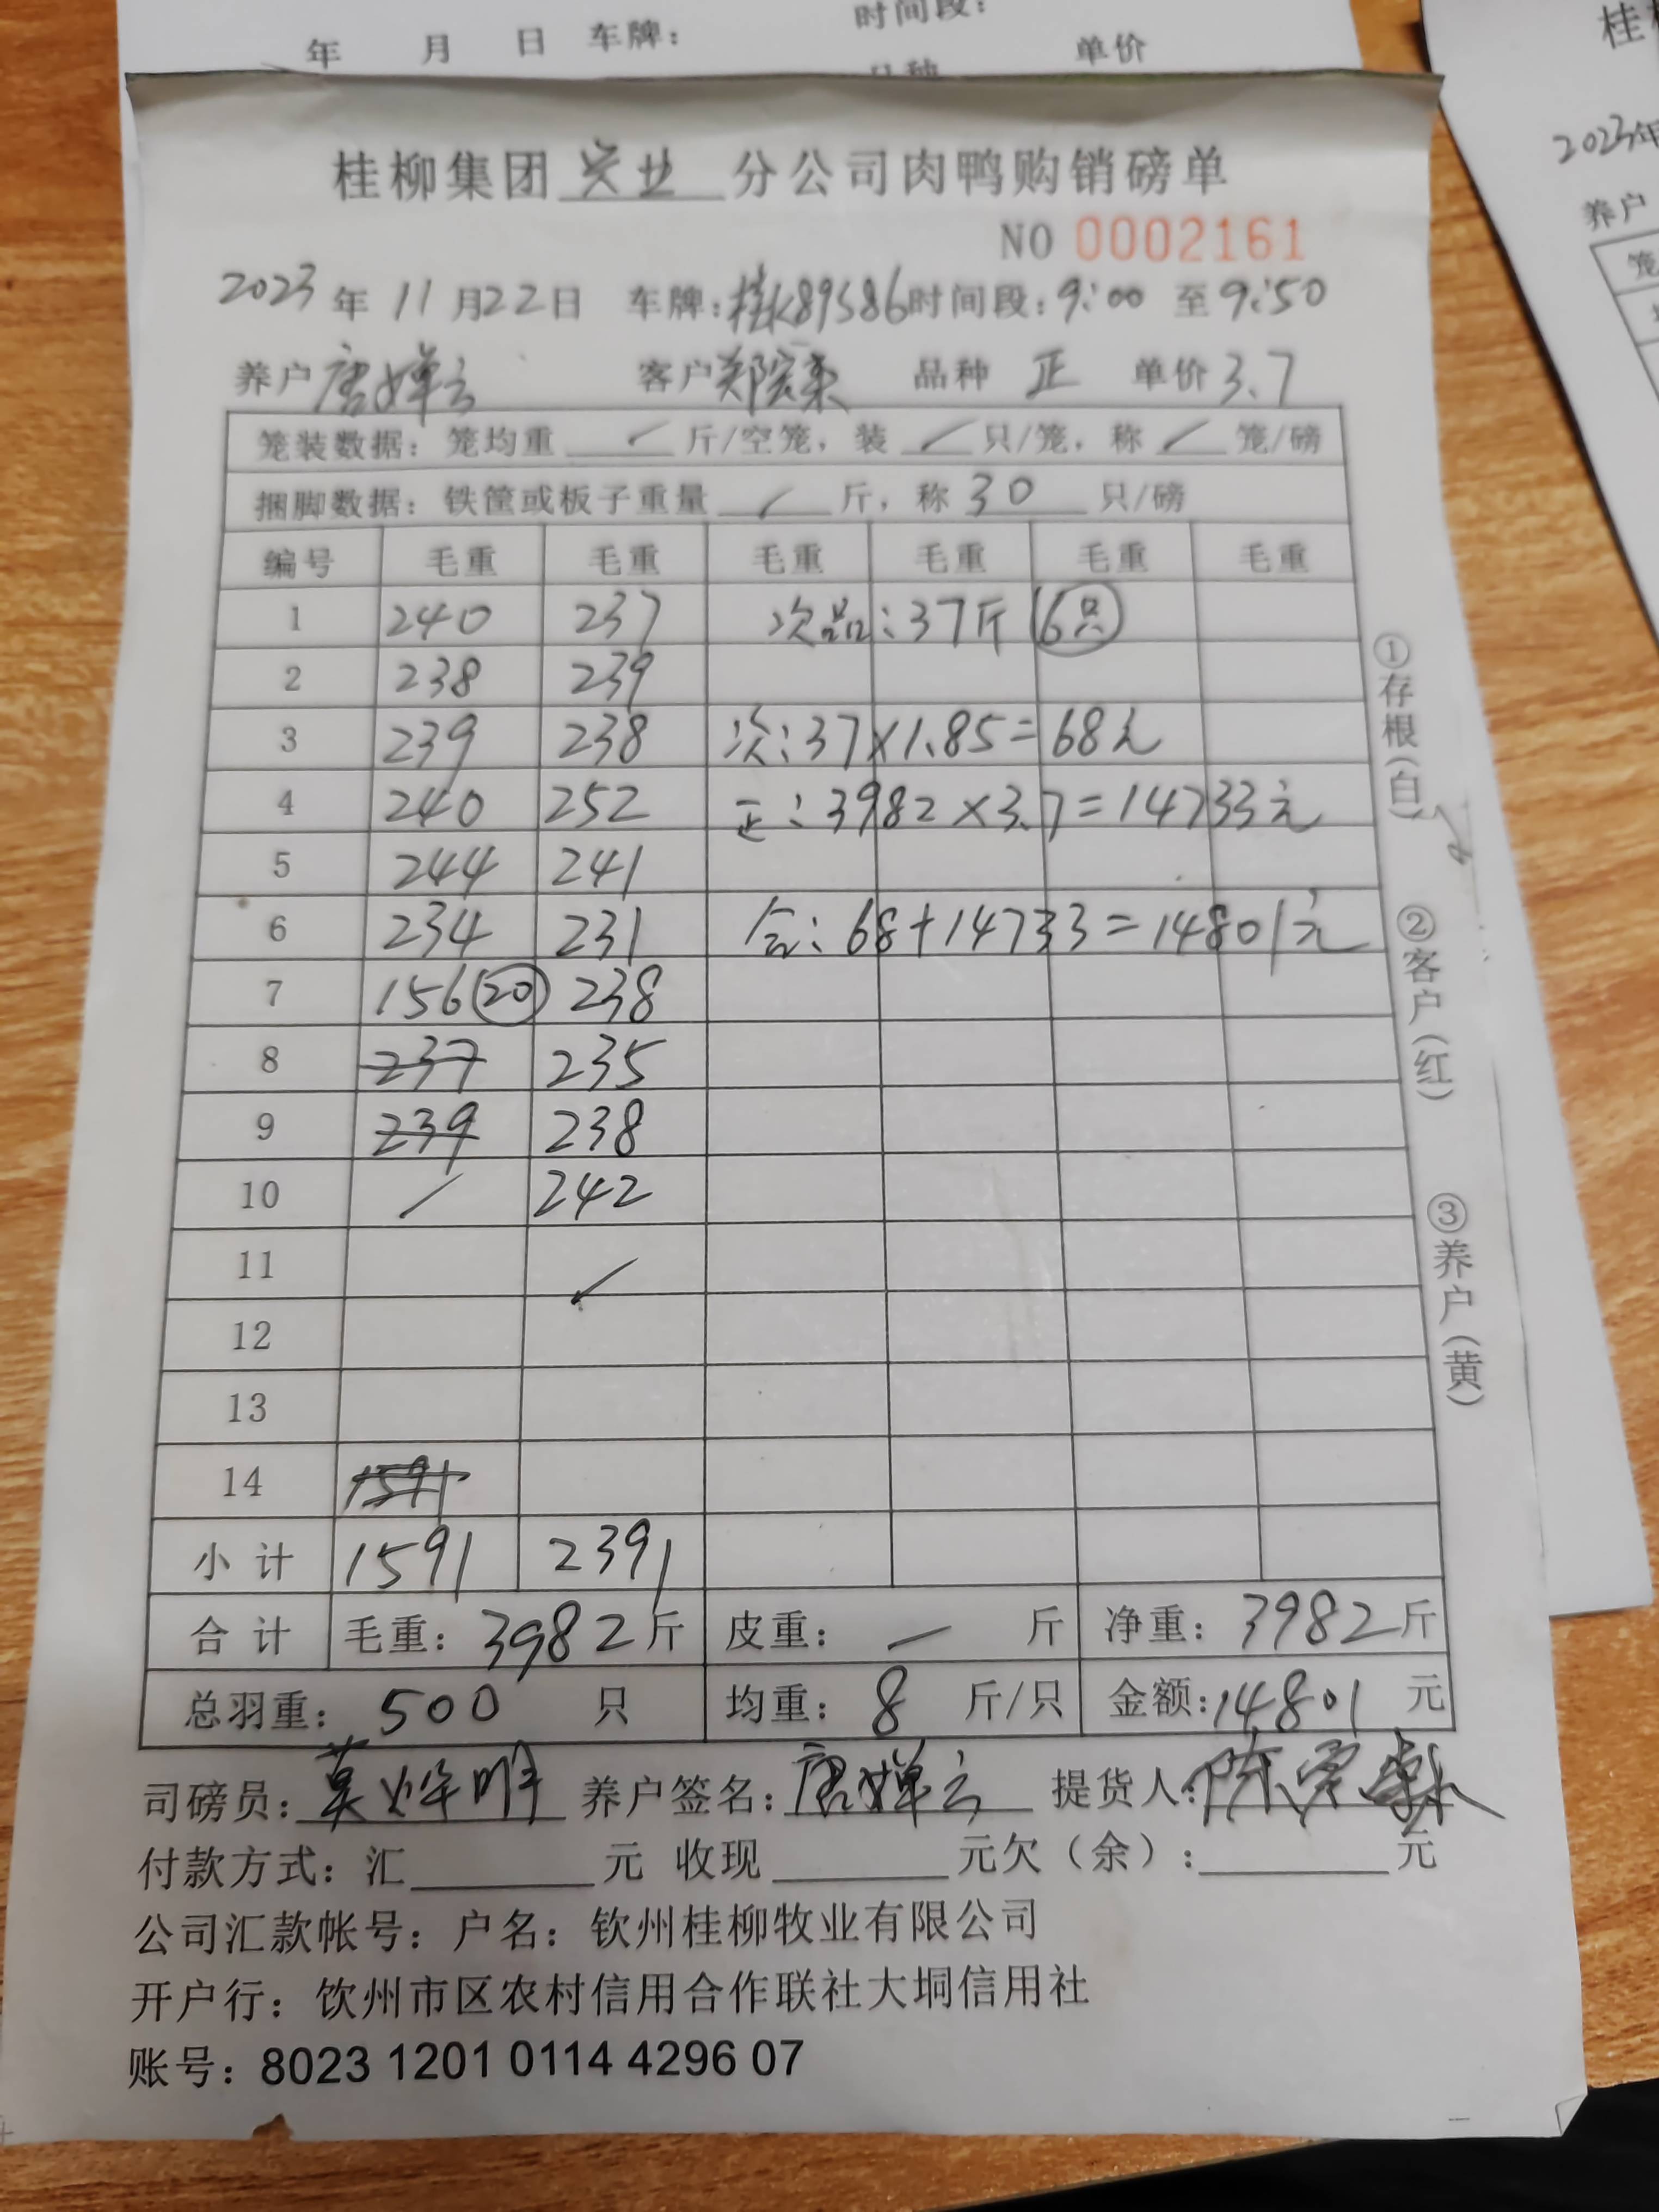 年 月 日 车牌: 时间段:
单价
桂柳集团 兴业 分公司肉鸭购销磅单
NO 0002161
2023年11月22日 车牌:桂K89S86 时间段:9:00 至9:50
养户 唐婵云 客户 品种 正 单价 3.7
笼装数据: 笼均重 / 斤/空笼, 装 / 只/笼, 称 / 笼/磅
捆脚数据: 铁筐或板子重量 / 斤, 称 30 只/磅
编号 毛重 毛重 毛重 毛重 毛重 毛重
1 240 237 次品:37斤 6只
2 238 239
3 239 238 次:37×1.85=68元
4 240 252 正:3982×3.7=14733元
5 244 241
6 234 231 合:68+14733=14801元
7 156 20 238
8 237 235
9 239 238
10 / 242
11 /
12
13
14 1591
小计 1591 2391
合计 毛重: 3982斤 皮重: — 斤 净重: 3982斤
总羽重: 500 只 均重: 8 斤/只 金额:14801 元
司磅员: 养户签名: 唐婵云 提货人:
付款方式: 汇 元 收现 元欠(余): 元
公司汇款帐号: 户名: 钦州桂柳牧业有限公司
开户行: 饮州市区农村信用合作联社大垌信用社
账号: 8023 1201 0114 4296 07
①存根(白)
②客户(红)
③养户(黄)
2023年
养户